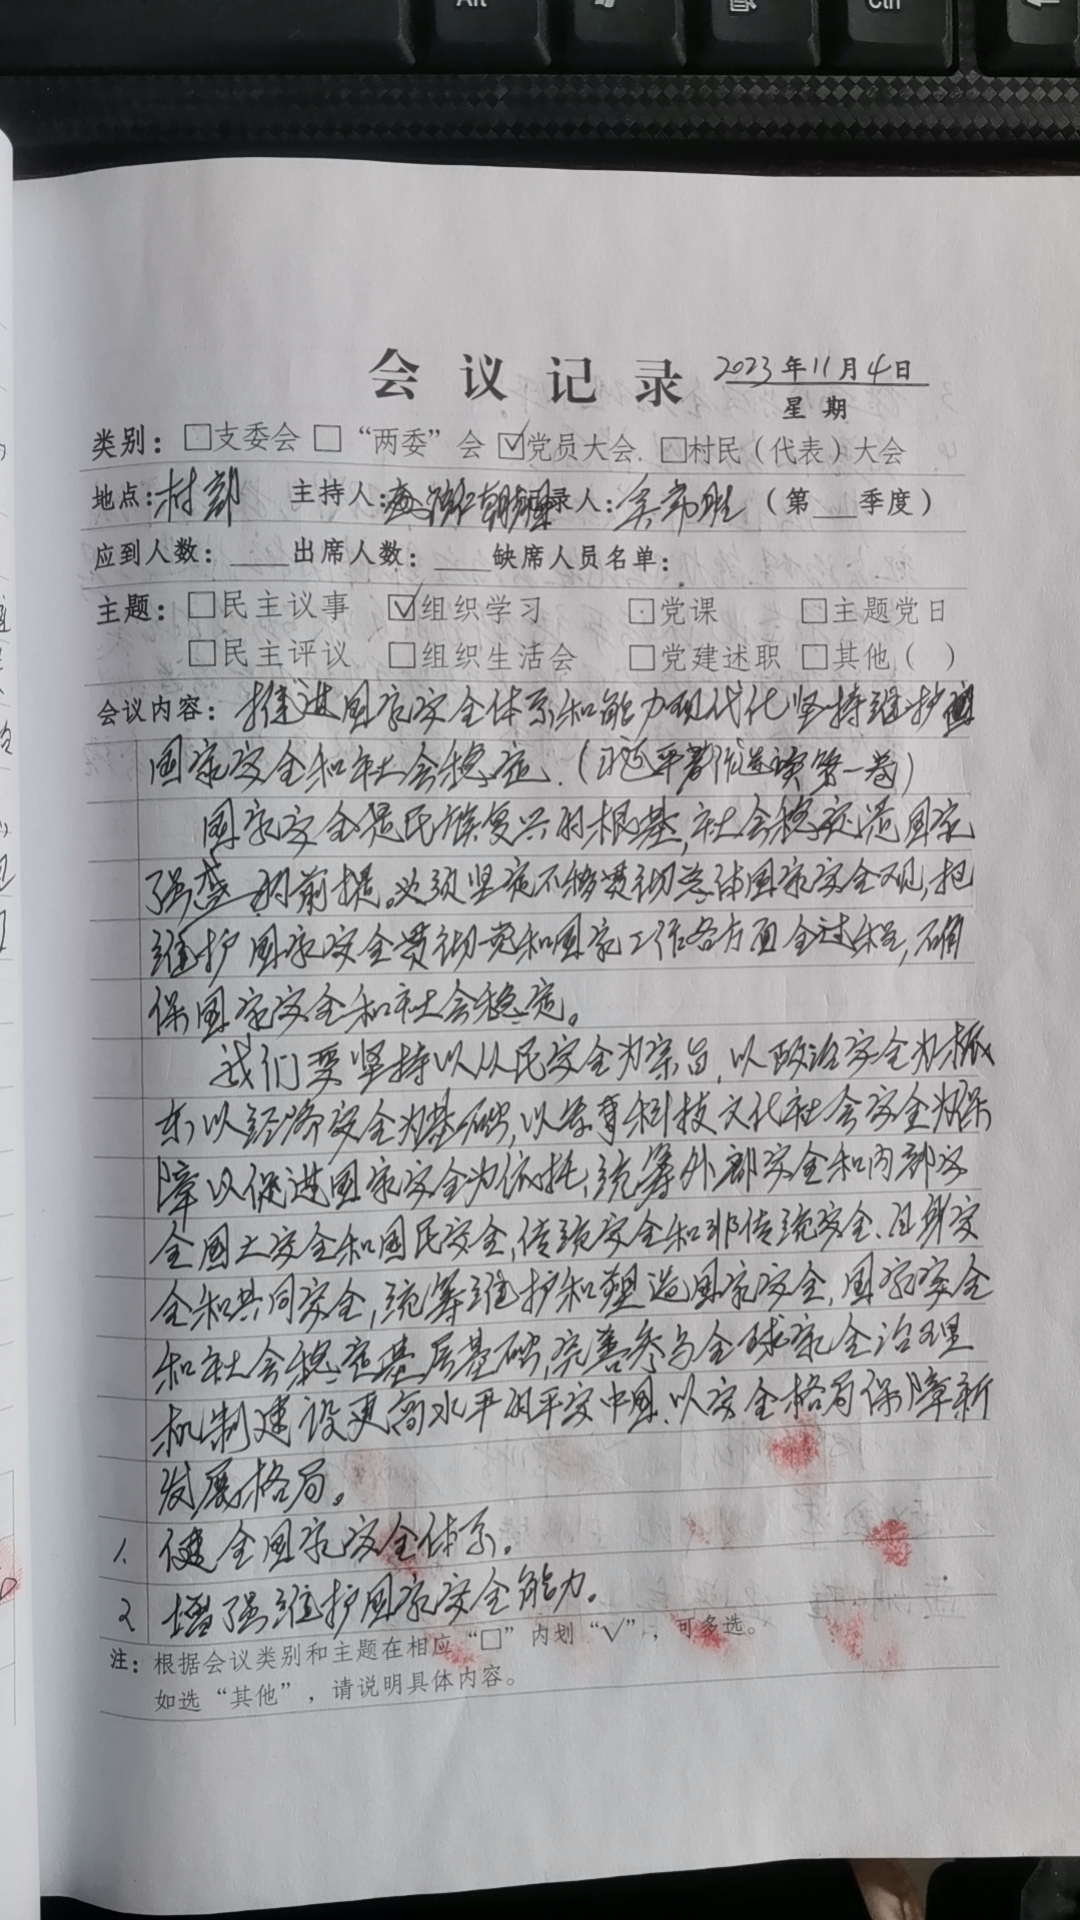 Alt
Ctrl
会议记录 2023年11月4日
星期
类别：□支委会 □“两委”会 ☑党员大会 □村民（代表）大会
地点：村部 主持人： 录人： （第___季度）
应到人数：____出席人数：____缺席人员名单：
主题：□民主议事 ☑组织学习 □党课 □主题党日
□民主评议 □组织生活会 □党建述职 □其他（ ）
会议内容：推进国家安全体系和能力现代化坚持维护
国家安全和社会稳定.（习近平著作选读第一卷）
国家安全是民族复兴的根基,社会稳定是国家
强盛的前提。必须坚定不移贯彻总体国家安全观,把
维护国家安全贯彻党和国家工作各方面全过程,确
保国家安全和社会稳定。
我们要坚持以人民安全为宗旨,以政治安全为根
本,以经济安全为基础,以军事科技文化社会安全为保
障以促进国家安全为依托,统筹外部安全和内部安
全国土安全和国民安全,传统安全和非传统安全.自身安
全和共同安全,统筹维护和塑造国家安全,国家安全
和社会稳定基层基础,完善参与全球安全治理
机制建设更高水平的平安中国.以安全格局保障新
发展格局。
1. 健全国家安全体系。
2 增强维护国家安全能力。
注：根据会议类别和主题在相应“□”内划“√”，可多选。
如选“其他”，请说明具体内容。